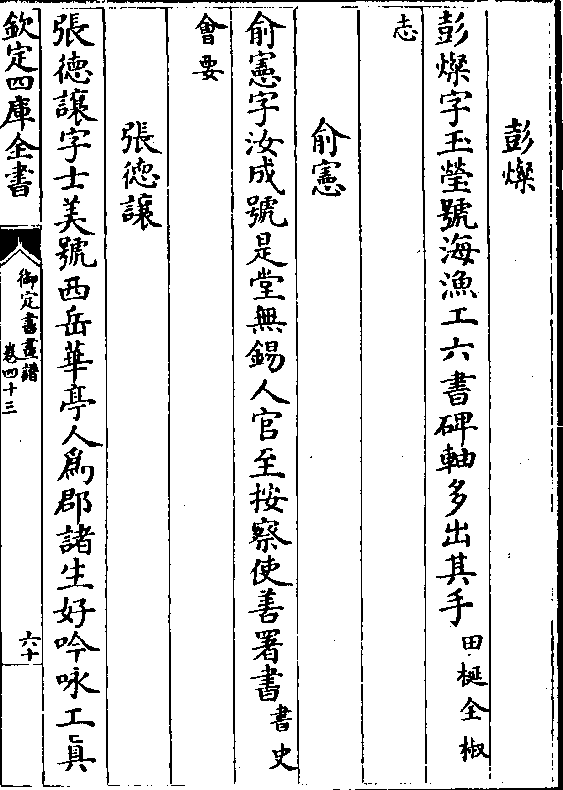 彭燦
彭燦字玉瑩號海漁工六書碑軸多出其手田梴全椒
志
俞憲
俞憲字汝成號是堂無錫人官至按察使善署書書史
會要
張德讓
張德讓字士美號西岳華亭人爲郡諸生好吟咏工眞
欽定四庫全書
御定書畫譜
卷四十三
六十